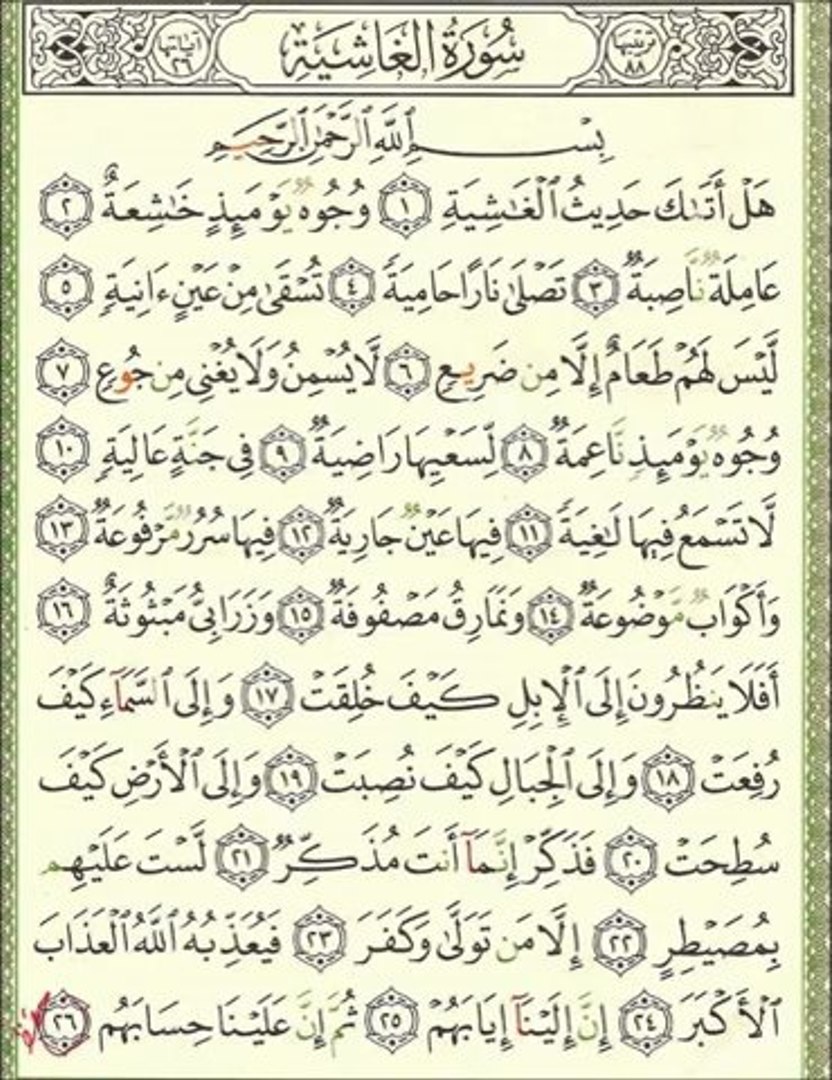 ترتيبها ٨٨ سُورَةُ الْغَاشِيَةِ آياتها ٢٦
بِسْمِ ٱللَّهِ ٱلرَّحْمَٰنِ ٱلرَّحِيمِ
هَلْ أَتَىٰكَ حَدِيثُ ٱلْغَٰشِيَةِ ١ وُجُوهٌ يَوْمَئِذٍ خَٰشِعَةٌ ٢
عَامِلَةٌ نَّاصِبَةٌ ٣ تَصْلَىٰ نَارًا حَامِيَةً ٤ تُسْقَىٰ مِنْ عَيْنٍ ءَانِيَةٍ ٥
لَّيْسَ لَهُمْ طَعَامٌ إِلَّا مِن ضَرِيعٍ ٦ لَّا يُسْمِنُ وَلَا يُغْنِى مِن جُوعٍ ٧
وُجُوهٌ يَوْمَئِذٍ نَّاعِمَةٌ ٨ لِّسَعْيِهَا رَاضِيَةٌ ٩ فِى جَنَّةٍ عَالِيَةٍ ١٠
لَّا تَسْمَعُ فِيهَا لَٰغِيَةً ١١ فِيهَا عَيْنٌ جَارِيَةٌ ١٢ فِيهَا سُرُرٌ مَّرْفُوعَةٌ ١٣
وَأَكْوَابٌ مَّوْضُوعَةٌ ١٤ وَنَمَارِقُ مَصْفُوفَةٌ ١٥ وَزَرَابِىُّ مَبْثُوثَةٌ ١٦
أَفَلَا يَنظُرُونَ إِلَى ٱلْإِبِلِ كَيْفَ خُلِقَتْ ١٧ وَإِلَى ٱلسَّمَآءِ كَيْفَ
رُفِعَتْ ١٨ وَإِلَى ٱلْجِبَالِ كَيْفَ نُصِبَتْ ١٩ وَإِلَى ٱلْأَرْضِ كَيْفَ
سُطِحَتْ ٢٠ فَذَكِّرْ إِنَّمَآ أَنتَ مُذَكِّرٌ ٢١ لَّسْتَ عَلَيْهِم
بِمُصَيْطِرٍ ٢٢ إِلَّا مَن تَوَلَّىٰ وَكَفَرَ ٢٣ فَيُعَذِّبُهُ ٱللَّهُ ٱلْعَذَابَ
ٱلْأَكْبَرَ ٢٤ إِنَّ إِلَيْنَآ إِيَابَهُمْ ٢٥ ثُمَّ إِنَّ عَلَيْنَا حِسَابَهُم ٢٦